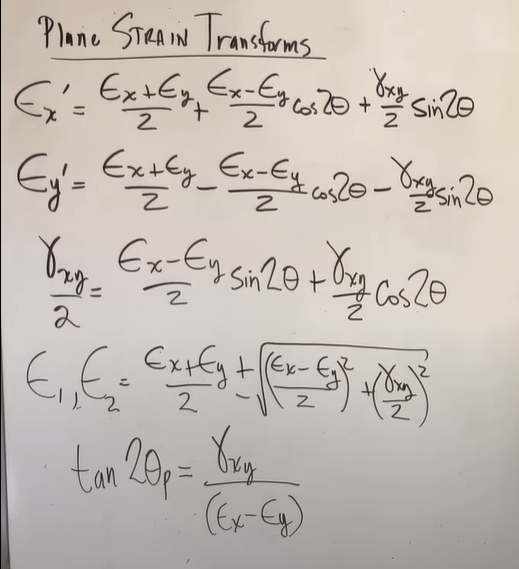 Plane STRAIN Transforms
ϵx' = (ϵx+ϵy)/2 + (ϵx−ϵy)/2 cos2θ + γxy/2 sin2θ
ϵy' = (ϵx+ϵy)/2 − (ϵx−ϵy)/2 cos2θ − γxy/2 sin2θ
γxy/2 = (ϵx−ϵy)/2 sin2θ + γxy/2 cos2θ
ϵ1, ϵ2 = (ϵx+ϵy)/2 ± √(((ϵx−ϵy)/2)² + (γxy/2)²)
tan 2θp = γxy/(ϵx−ϵy)